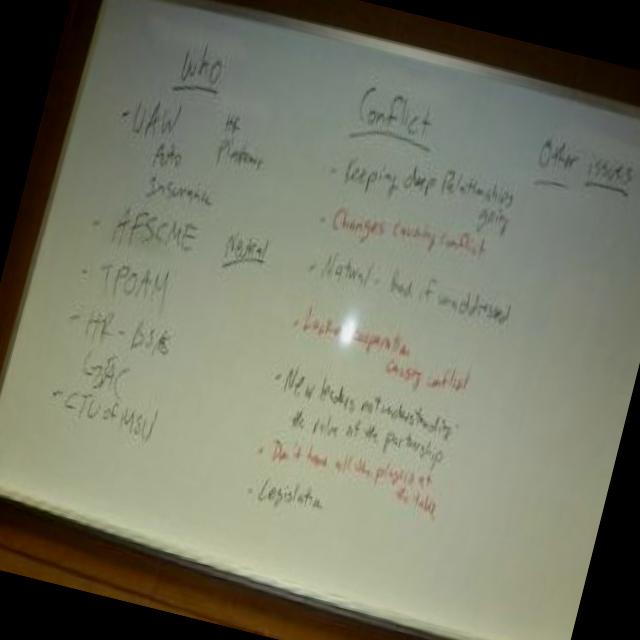 Who
- UAW
Auto
Insurance
- AFSCME
- TPOAM
- HR -
- CTU of MSU
Conflict
- Keeping deep Relationships
going
- Changes causing conflict
- Natural - bad if unaddressed
- Lack of
causing conflict
- New leaders not understanding
the role of the partnership
- Don't have all the players at
the table
- Legislation
Other issues